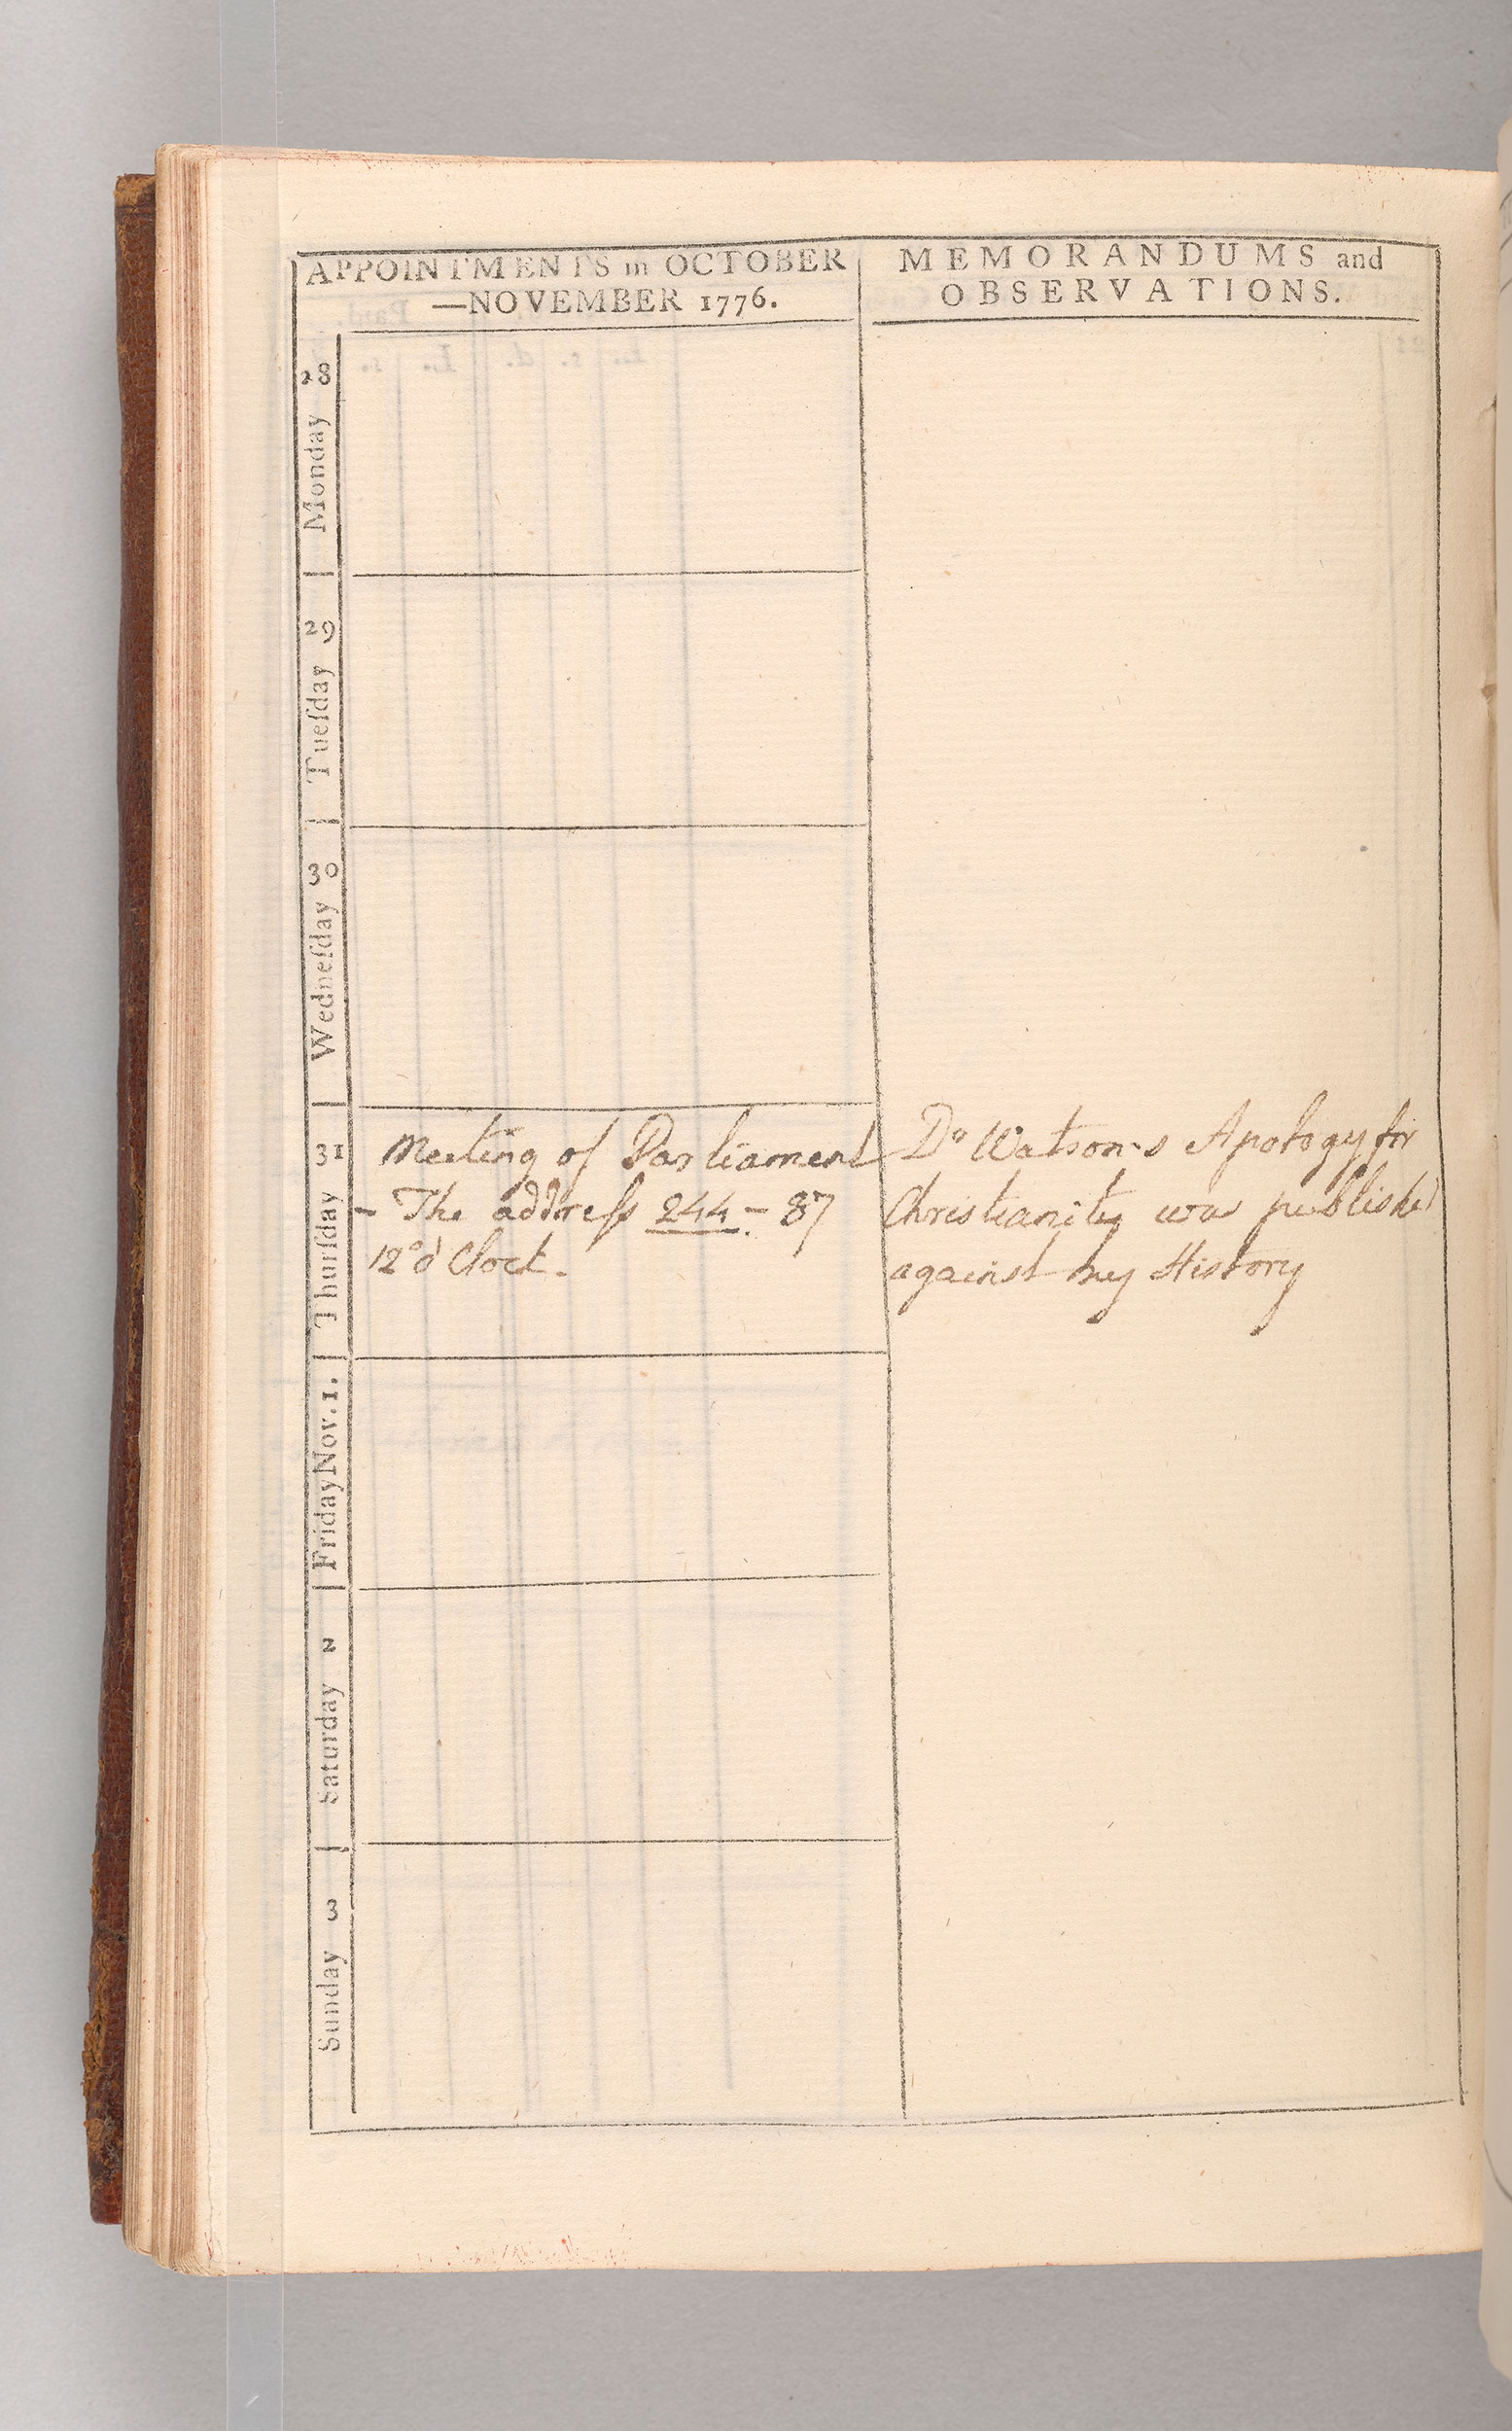 APPOINTMENTS in OCTOBER
—NOVEMBER 1776.
MEMORANDUMS and
OBSERVATIONS.
Monday 28
Tueſday 29
Wedneſday 30
Thurſday 31
Meeting of Parliament
- The addreſs 244 - 87
12 o' Clock.
Dr Watson's Apology for
Christianity was published
against my History
Friday Nov. 1.
Saturday 2
Sunday 3